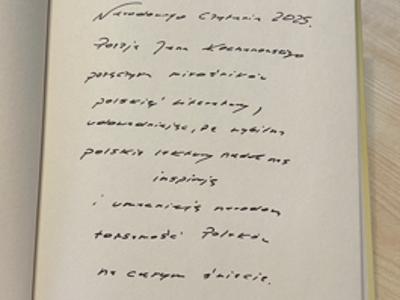 Narodowego Czytania 2025.
Poezja Jana Kochanowskiego
połączyła miłośników
polskiej literatury,
udowadniając, że wybitne
polskie lektury nadal nas
inspirują
i umacniają narodową
tożsamość Polaków
na całym świecie.